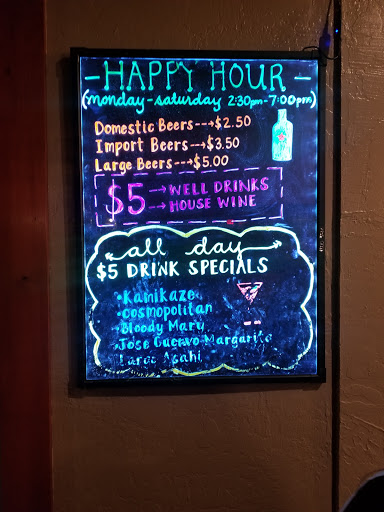 -HAPPY HOUR-
(monday-saturday 2:30pm-7:00pm)
Domestic Beers--→$2.50
Import Beers--→$3.50
Large Beers--→$5.00
$5 →WELL DRINKS
→HOUSE WINE
all day
$5 DRINK SPECIALS
•Kamikaze
•cosmopolitan
•Bloody Mary
•Jose Cuervo Margarita
Large Asahi